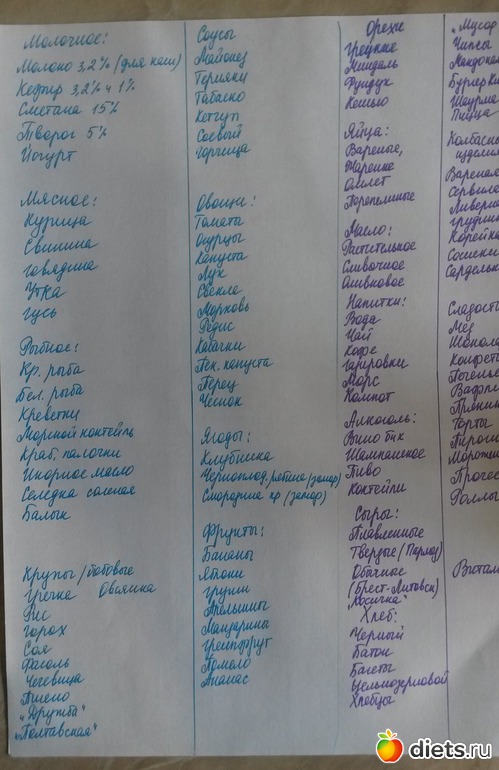 Молочное:
Молоко 3,2% (для каш)
Кефир 3,2% и 1%
Сметана 15%
Творог 5%
Йогурт
Мясное:
Курица
Свинина
говядина
Утка
Гусь
Рыбное:
Кр. рыба
Бел. рыба
Креветки
Морской коктейль
Краб. палочки
Икорное масло
Селедка соленая
Балык
Крупы / бобовые
Гречка Овсянка
Рис
Горох
Соя
Фасоль
Чечевица
Пшено
"Дружба"
"Полтавская"
Соусы
Майонез
Терияки
Табаско
Кетчуп
Соевый
Горчица
Овощи:
Томаты
Огурцы
Капуста
Лук
Свекла
Морковь
Редис
Кабачки
Пек. капуста
Перец
Чеснок
Ягоды:
Клубника
Черноплод. рябина (замор)
Смородина кр (замор)
Фрукты:
Бананы
Яблоки
Груши
Апельсины
Мандарины
Грейпфрут
Помело
Ананас
Орехи
Грецкие
Миндаль
Фундук
Кешью
Яйца:
Вареные,
Жареные
Омлет
Перепелиные
Масло:
Растительное
Сливочное
Оливковое
Напитки:
Вода
Чай
Кофе
Газировки
Морс
Компот
Алкоголь:
Вино б/к
Шампанское
Пиво
Коктейли
Сыры:
Плавленные
Твердые (Пармез)
Обычные
(Брест-Литовск)
"Косичка"
Хлеб:
Черный
Батон
Багеты
Цельнозерновой
Хлебцы
"Мусор
Чипсы
Макдонал
Бургер Ки
Шаурма
Пицца
Колбасн
изделия
Вареная
Сервила
Ливерна
грудинка
Корейка
Сосиски
Сардельк
Сладость
Мед
Шокола
Конфеты
Печенье
Вафли
Пряник
Торты
Пирожн
Морожен
Прочее
Роллы
Витам
diets.ru